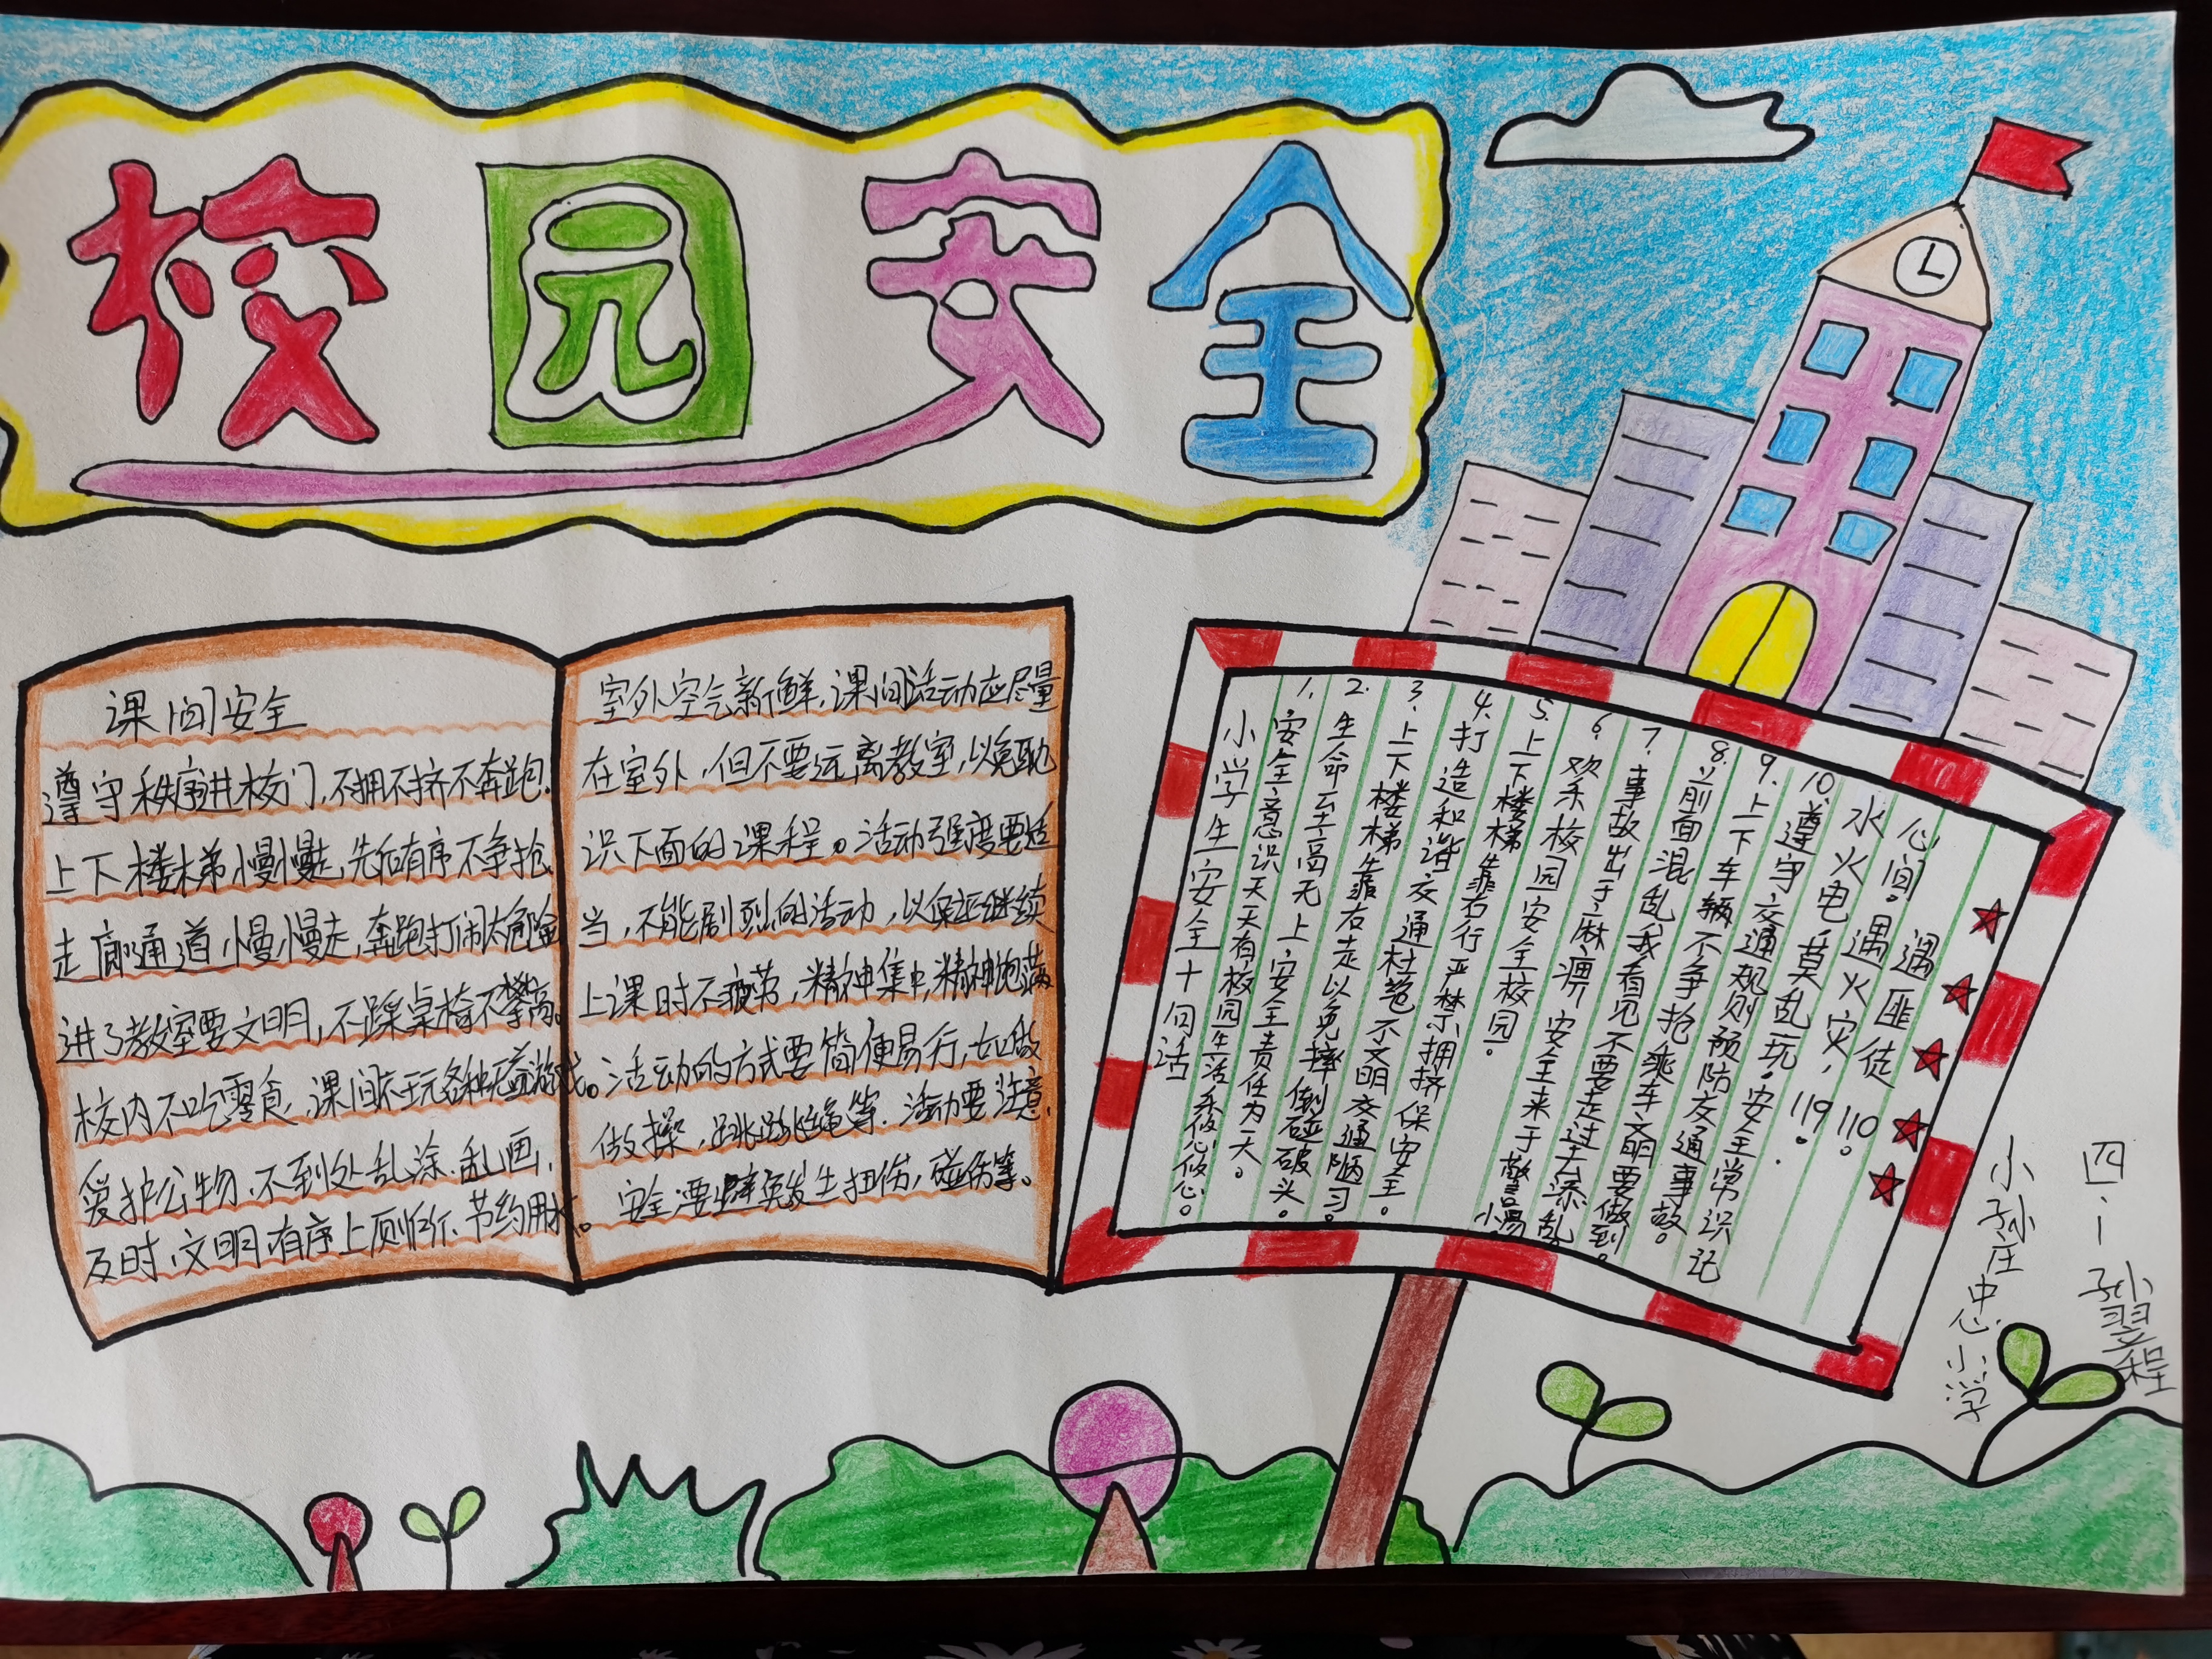 校园安全
课间安全
遵守秩序进校门,不拥不挤不奔跑.
上下楼梯慢慢走,先后有序不争抢.
走廊通道慢慢走,奔跑打闹太危险
进了教室要文明,不踩桌椅不攀高。
校内不吃零食,课间不玩各种危险游戏。
爱护公物、不到处乱涂、乱画、
及时、文明、有序上厕所、节约用水。
室外空气新鲜,课间活动应尽量
在室外,但不要远离教室,以免耽
识下面的课程。活动强度要适
当,不能剧烈的活动,以保证继续
上课时不疲劳,精神集中,精神饱满
活动的方式要简便易行,如做
做操,跳跳绳等.活动要注意.
安全要避免发生扭伤,碰伤等。
小学生安全十句话
1.安全意识天天有校园生活乐悠悠心。
2.生命至高无上,安全责任为天。
3.上下楼梯靠右走以免摔倒碰破头。
4.打造和谐交通杜绝不文明交通陋习。
5.上下楼梯靠右行严禁拥挤保安全。
6.欢乐校园安全校园。
7.事故出于麻痹 安全来于警惕
8.前面混乱我看见不要走过去添乱
9.上下车辆不争抢乘车文明要做到。
10.遵守交通规则预防交通事故。
水火电,莫乱玩。安全常识记
心间。遇火灾,119。
遇匪徒 110。
四.一 孙翌程
小孙庄中心小学